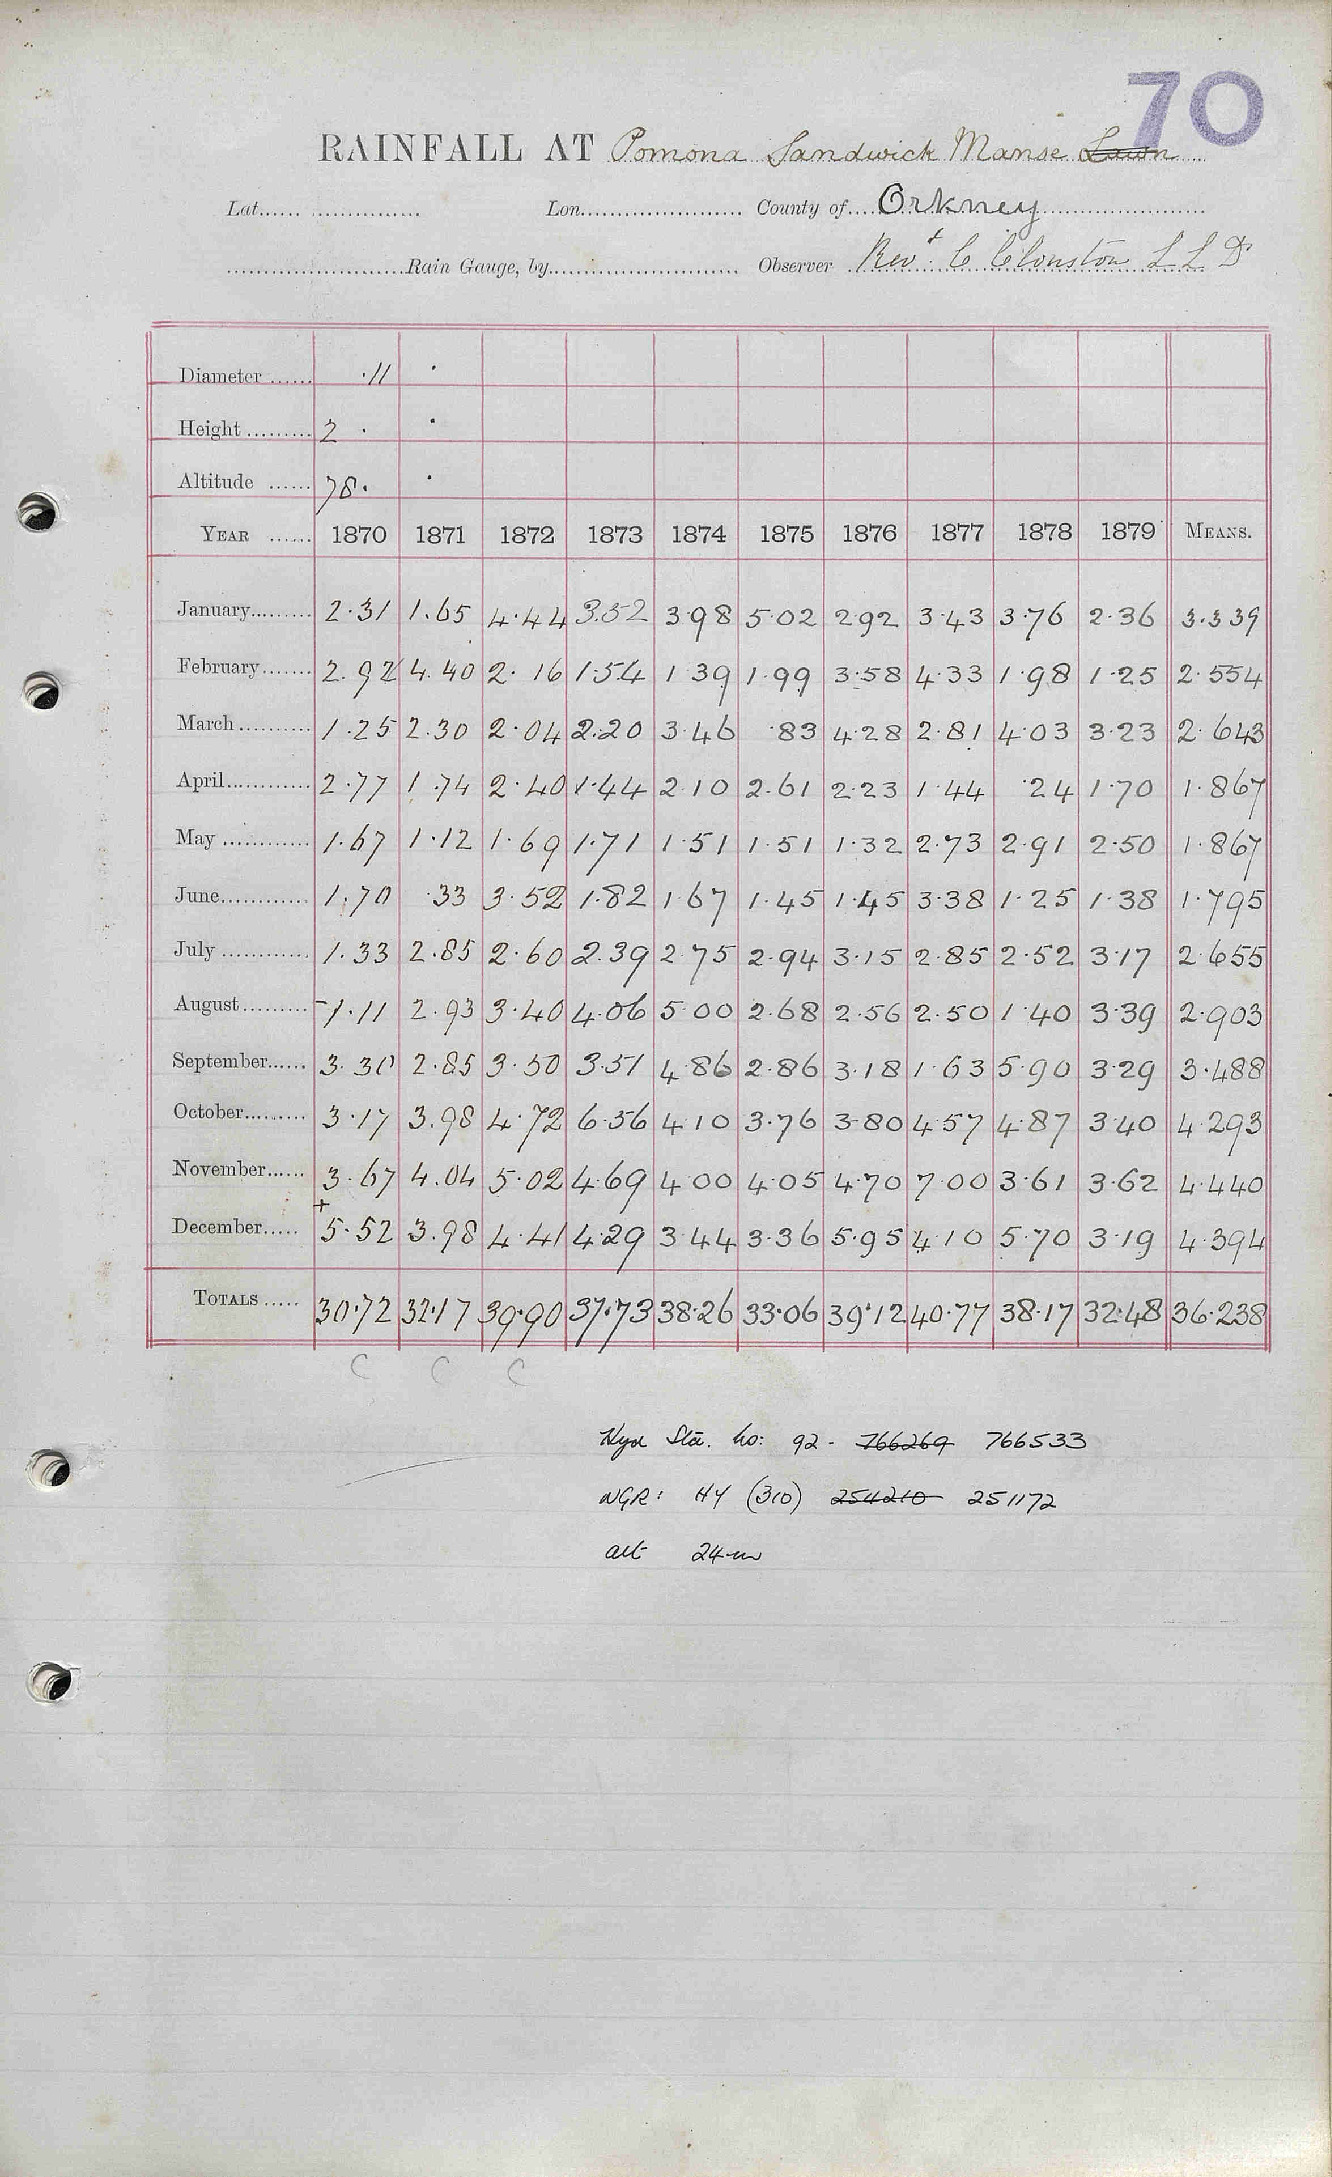 70
RAINFALL AT Pomona Sandwick Manse Lawn
Lat. Lon. County of Orkney
Rain Gauge, by Observer Revt. C Clouston L L D
Diameter ·11 ·
Height 2 · ·
Altitude 78. ·
YEAR 1870 1871 1872 1873 1874 1875 1876 1877 1878 1879 MEANS.
January 2·31 1·65 4·44 3·52 3·98 5·02 2·92 3·43 3·76 2·36 3·339
February 2·92 4·40 2·16 1·54 1·39 1·99 3·58 4·33 1·98 1·25 2·554
March 1·25 2·30 2·04 2·20 3·46 ·83 4·28 2·81 4·03 3·23 2·643
April 2·77 1·74 2·40 1·44 2·10 2·61 2·23 1·44 ·24 1·70 1·867
May 1·67 1·12 1·69 1·71 1·51 1·51 1·32 2·73 2·91 2·50 1·867
June 1·70 ·33 3·52 1·82 1·67 1·45 1·45 3·38 1·25 1·38 1·795
July 1·33 2·85 2·60 2·39 2·75 2·94 3·15 2·85 2·52 3·17 2·655
August -1·11 2·93 3·40 4·06 5·00 2·68 2·56 2·50 1·40 3·39 2·903
September 3·30 2·85 3·50 3·51 4·86 2·86 3·18 1·63 5·90 3·29 3·488
October 3·17 3·98 4·72 6·56 4·10 3·76 3·80 4·57 4·87 3·40 4·293
November 3·67 4·04 5·02 4·69 4·00 4·05 4·70 7·00 3·61 3·62 4·440
December +5·52 3·98 4·41 4·29 3·44 3·36 5·95 4·10 5·70 3·19 4·394
TOTALS 30·72 32·17 39·90 37·73 38·26 33·06 39·12 40·77 38·17 32·48 36·238
C C C
Hyd Sta. No: 92 - 766269 766533
NGR: HY (310) 254210 251172
alt 24m